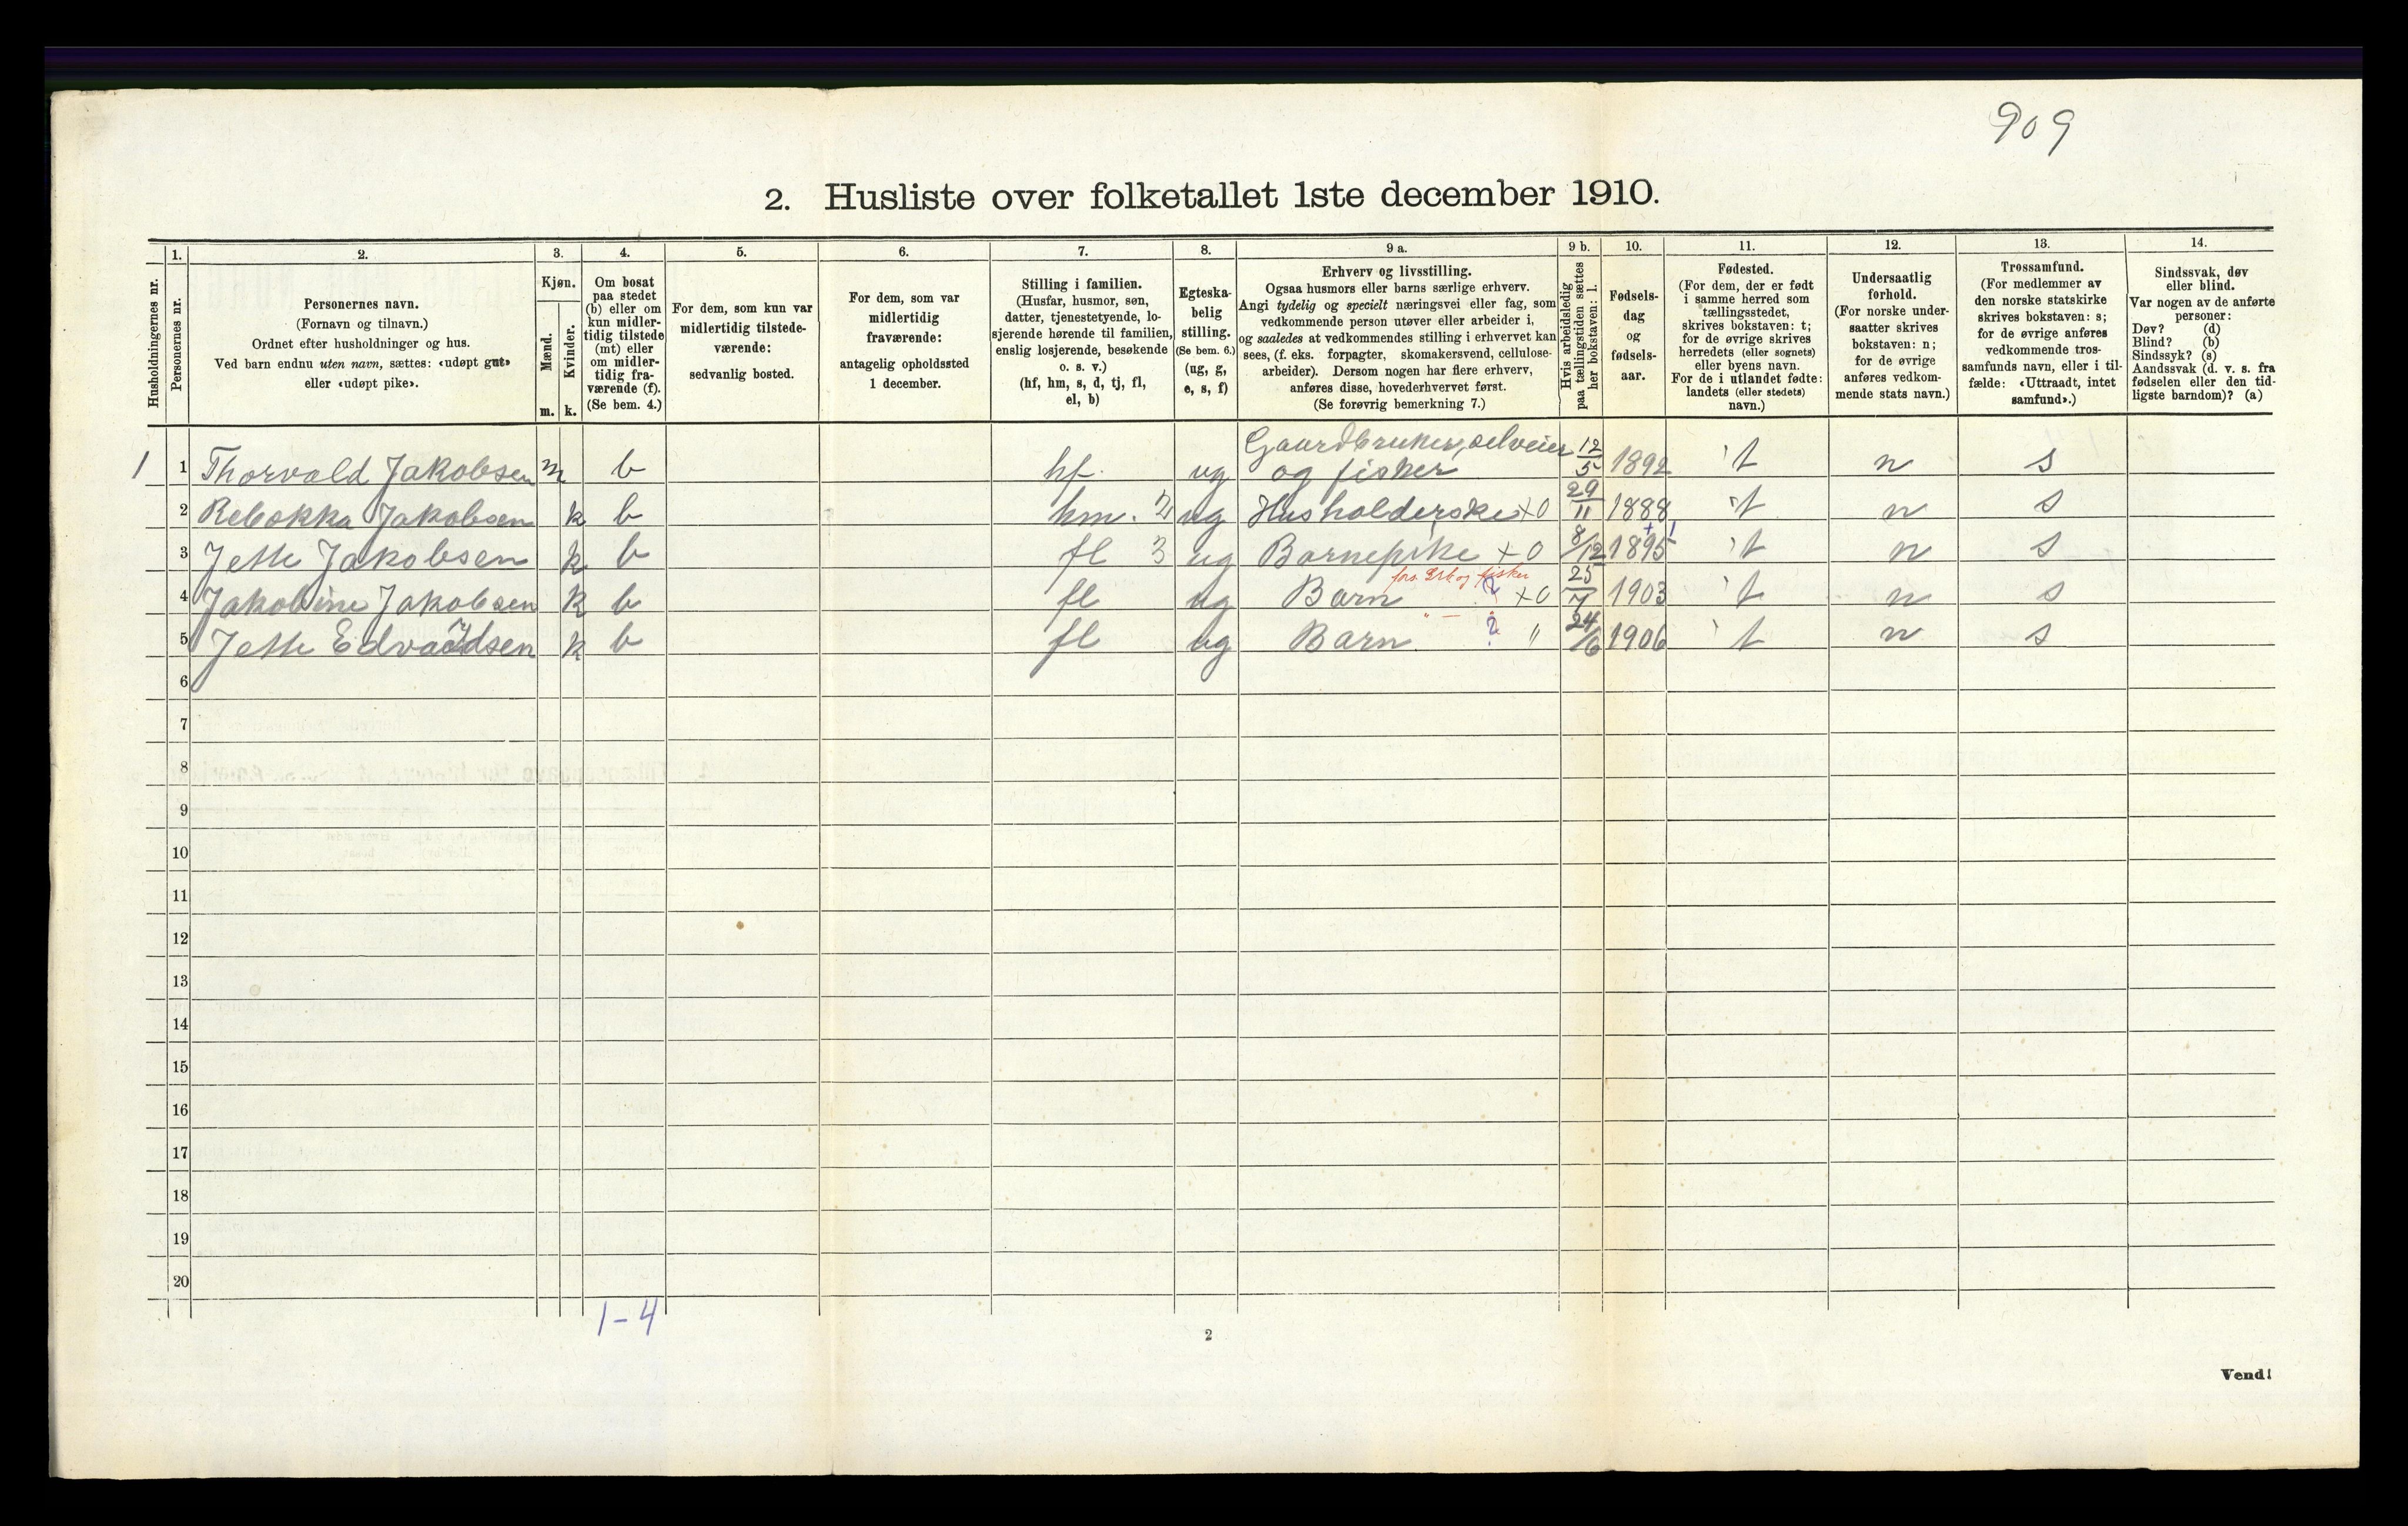 909
2. Husliste over folketallet 1ste december 1910.
Husholdningernes nr.
1.
Personernes nr.
2.
Personernes navn.
(Fornavn og tilnavn.)
Ordnet efter husholdninger og hus.
Ved barn endnu uten navn, sættes: «udøpt gut»
eller «udøpt pike».
3.
Kjøn.
Mænd.
Kvinder.
m. k.
4.
Om bosat
paa stedet
(b) eller om
kun midler-
tidig tilstede
(mt) eller
om midler-
tidig fra-
værende (f).
(Se bem. 4.)
5.
For dem, som kun var
midlertidig tilstede-
værende:
sedvanlig bosted.
6.
For dem, som var
midlertidig
fraværende:
antagelig opholdssted
1 december.
7.
Stilling i familien.
(Husfar, husmor, søn,
datter, tjenestetyende, lo-
sjerende hørende til familien,
enslig losjerende, besøkende
o. s. v.)
(hf, hm, s, d, tj, fl,
el, b)
8.
Egteska-
belig
stilling.
(Se bem. 6.)
(ug, g,
e, s, f)
9 a.
Erhverv og livsstilling.
Ogsaa husmors eller barns særlige erhverv.
Angi tydelig og specielt næringsvei eller fag, som
vedkommende person utøver eller arbeider i,
og saaledes at vedkommendes stilling i erhvervet kan
sees, (f. eks. forpagter, skomakersvend, cellulose-
arbeider). Dersom nogen har flere erhverv,
anføres disse, hovederhvervet først.
(Se forøvrig bemerkning 7.)
9 b.
Hvis arbeidsledig
paa tællingstiden sættes
her bokstaven: l.
10.
Fødsels-
dag
og
fødsels-
aar.
11.
Fødested.
(For dem, der er født
i samme herred som
tællingsstedet,
skrives bokstaven: t;
for de øvrige skrives
herredets (eller sognets)
eller byens navn.
For de i utlandet fødte:
landets (eller stedets)
navn.)
12.
Undersaatlig
forhold.
(For norske under-
saatter skrives
bokstaven: n;
for de øvrige
anføres vedkom-
mende stats navn.)
13.
Trossamfund.
(For medlemmer av
den norske statskirke
skrives bokstaven: s;
for de øvrige anføres
vedkommende tros-
samfunds navn, eller i til-
fælde: «Uttraadt, intet
samfund».)
14.
Sindssvak, døv
eller blind.
Var nogen av de anførte
personer:
Døv? (d)
Blind? (b)
Sindssyk? (s)
Aandssvak (d. v. s. fra
fødselen eller den tid-
ligste barndom)? (a)
1 1 Thorvald Jakobsen m b hf. ug Gaardbruker, selveier og fisker 12/5 1892 t n s
2 Rebekka Jakobsen k b hm. ug Husholderske x0 29/11 1888 t n s
3 Jette Jakobsen k b fl 3 ug Barnepike x0 8/12 1895 t n s
4 Jakobine Jakobsen k b fl ug Barn fors. Grbr og fisker 2 x0 25/7 1903 t n s
5 Jette Edvardsen k b fl ug Barn " — 2 " 24/6 1906 t n s
6
7
8
9
10
11
12
13
14
15
16
17
18
19
20
1-4
2
Vend!